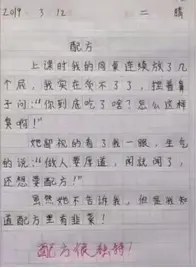 2019 3 12 二 晴
配方
上课时我的同桌连续放了几
个屁，我实在受不了了，捏着鼻
子问："你到底吃了啥？怎么这样
臭啊！"
她鄙视的看了我一眼，生气
的说："做人要厚道，闻就闻了，
还想要配方！"
虽然她不告诉我，但是我知
道配方里有韭菜！
配方很独特！